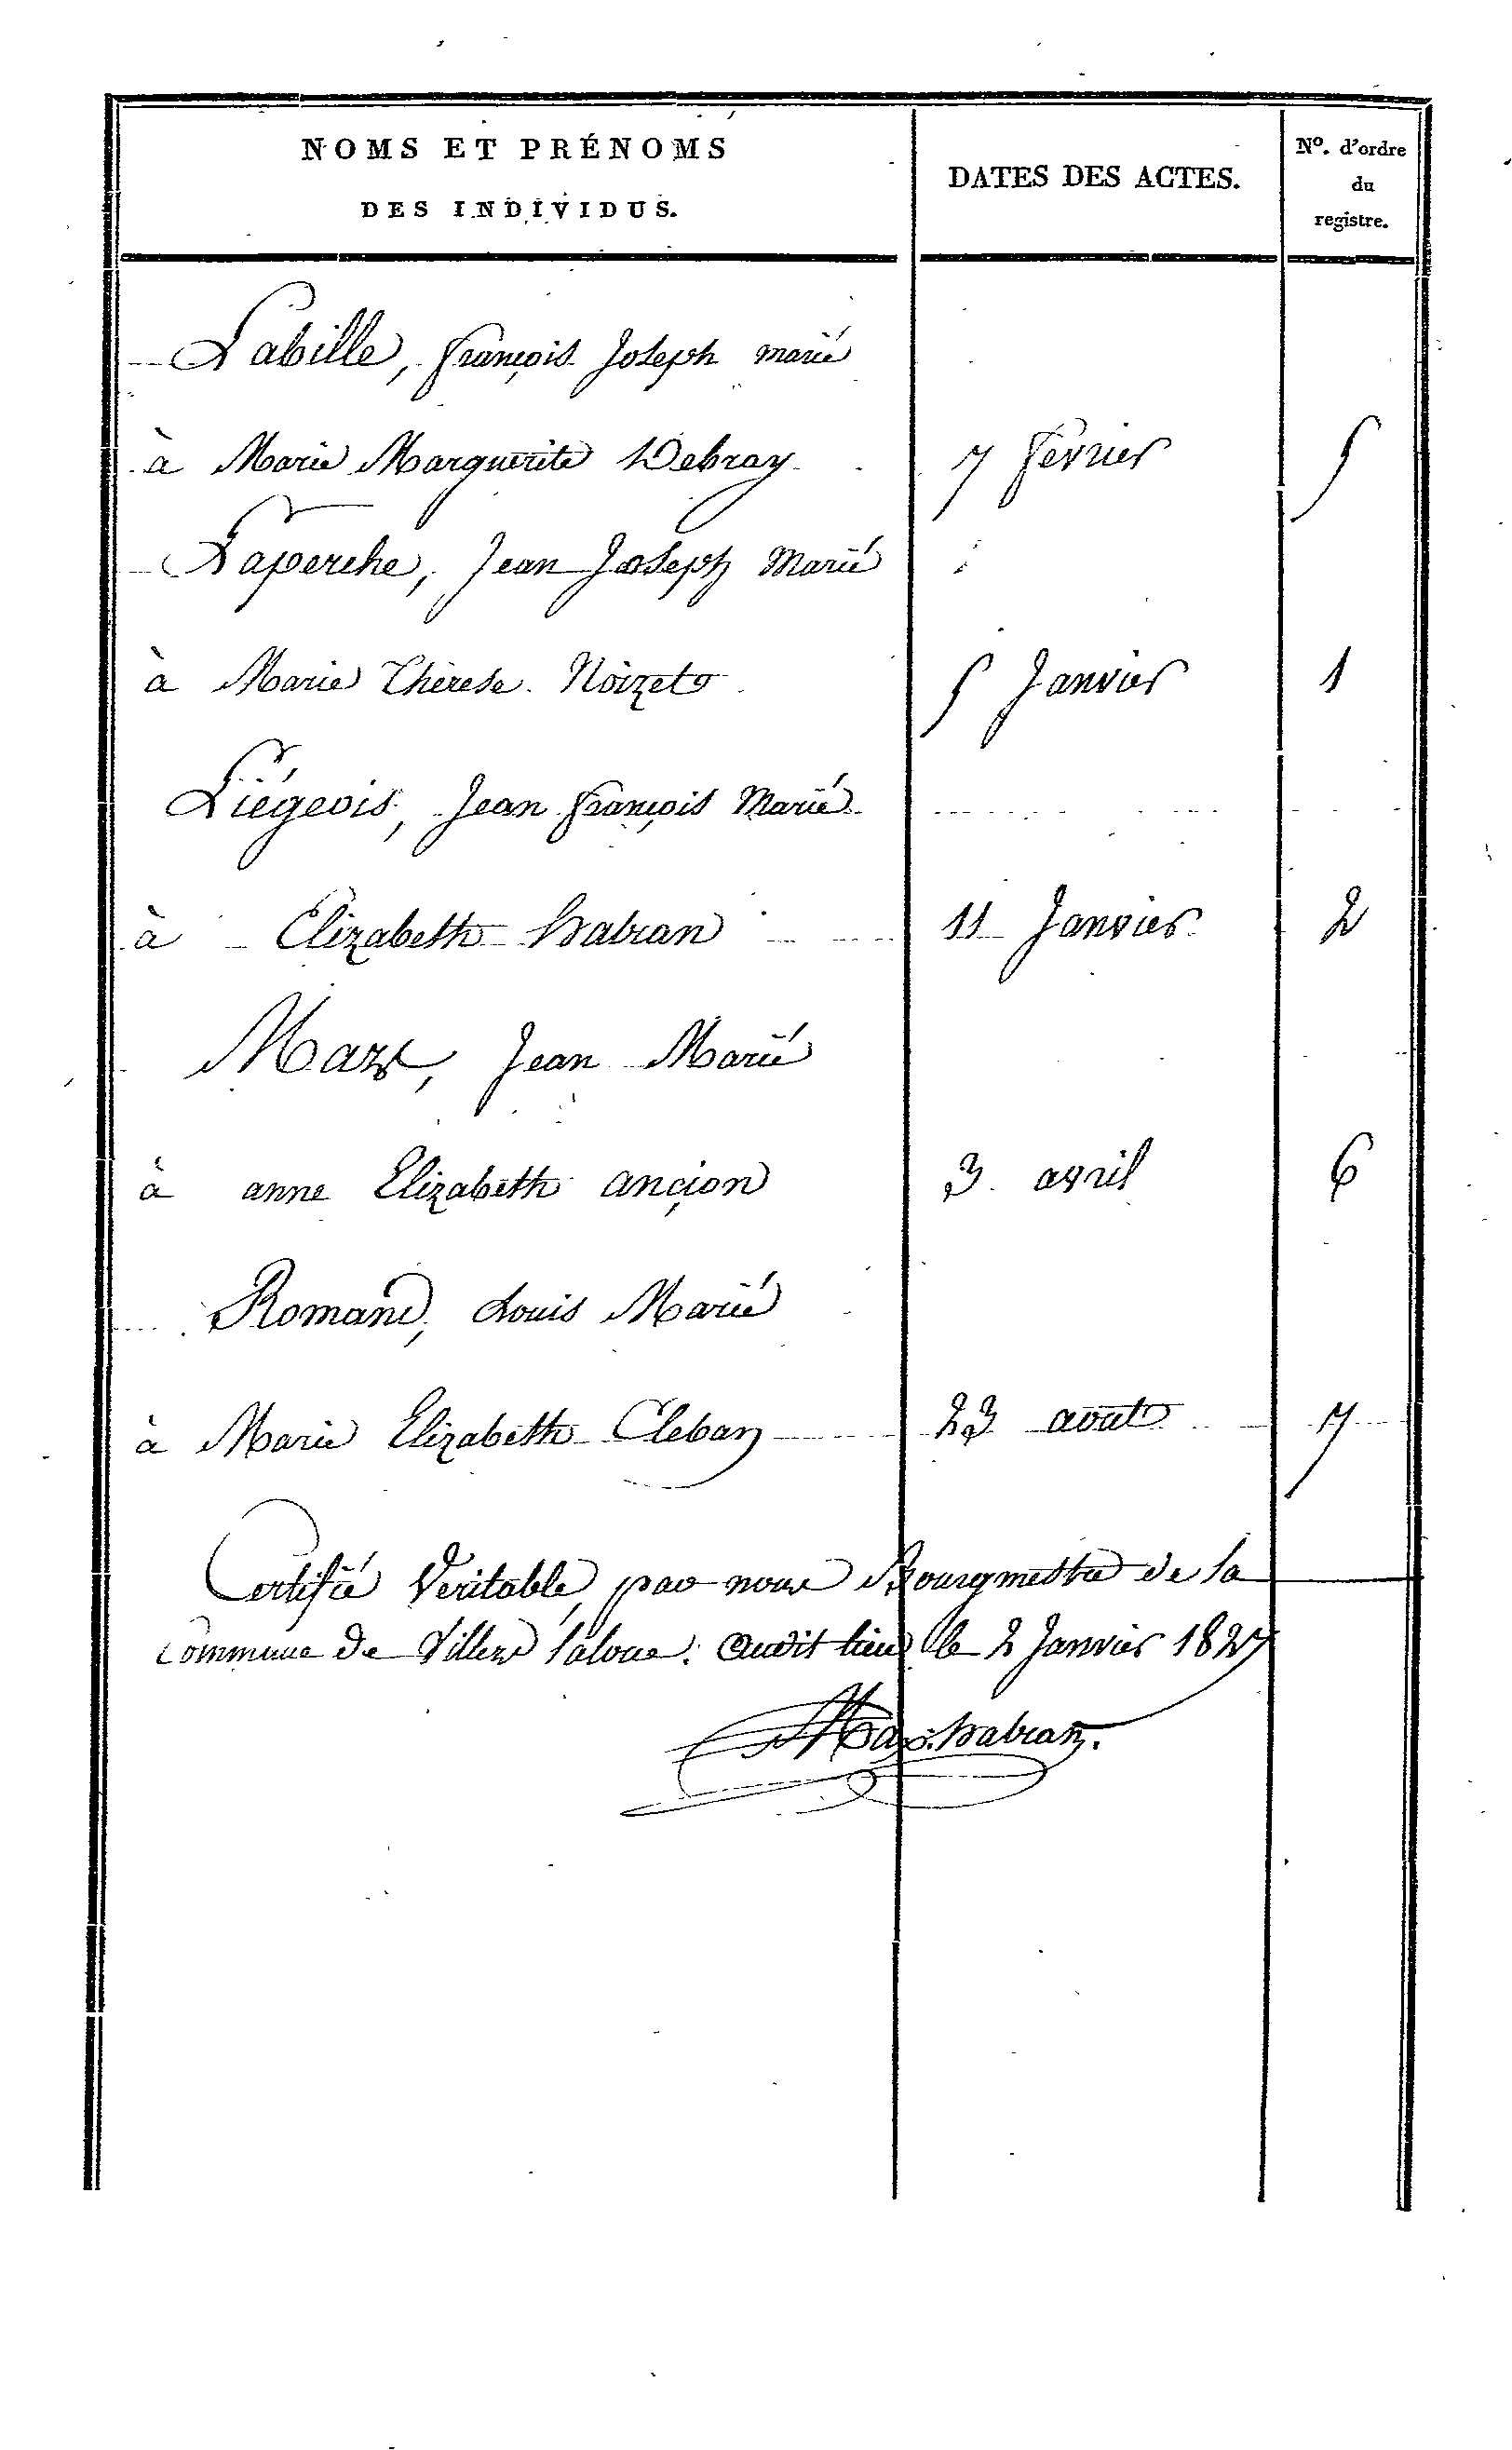 NOMS ET PRÉNOMS
DES INDIVIDUS.
DATES DES ACTES.
Nº. d'ordre
du
registre.
Labille, françois Joseph marié
à Marie Marguerite Debray 7 fevrier 5
Laperche, Jean Joseph Marié
à Marie Thérese Noizet 5 Janvier 1
Liégeois, Jean françois Marié
à Elizabeth habran 11 Janvier 2
Jean Marié
à anne Elizabeth ançion 3 avril 6
Romand, Louis Marié
à Marie Elizabeth Cleban 23 août 7
Certifié Veritable par nous Bourgmestre de la
Commune de Villers laloue. audit lieu le 2 Janvier 1827
habran.